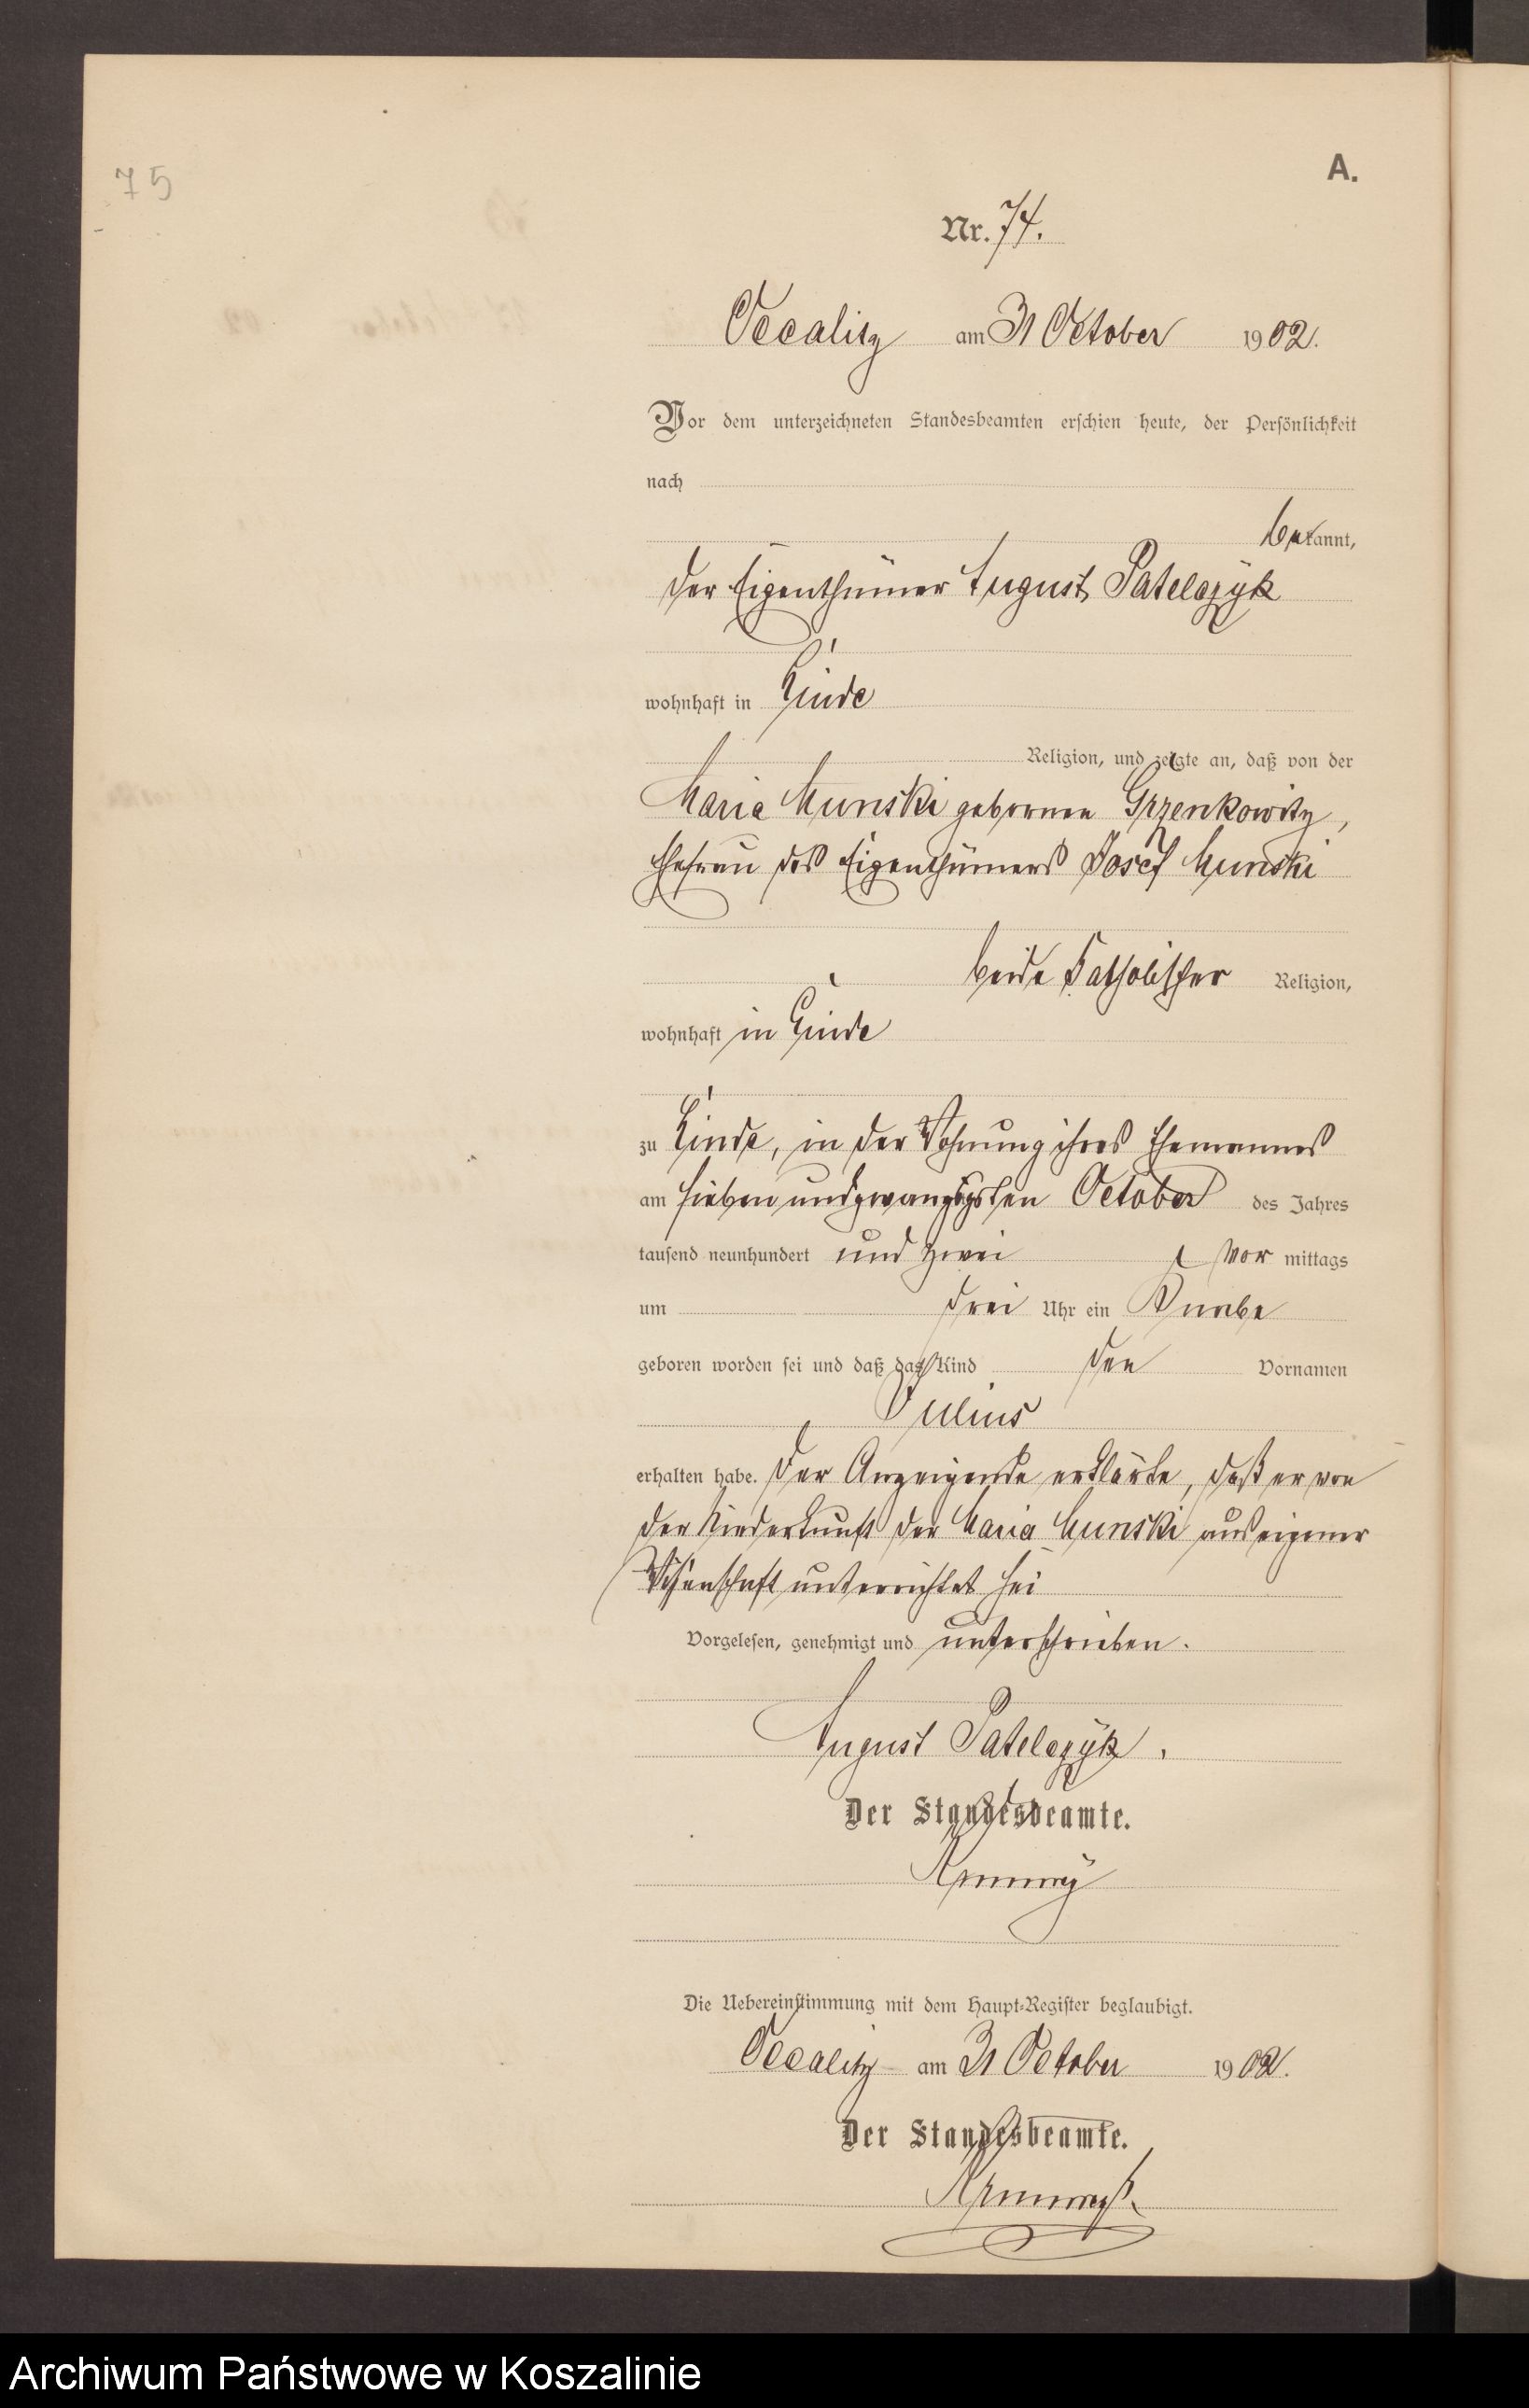 75
A.
Nr. 74.
Occalitz am 31 October 1902.
Vor dem unterzeichneten Standesbeamten erschien heute, der Persönlichkeit
nach
bekannt,
der Eigenthümer August Patelczÿk
wohnhaft in Linde
Religion, und zeigte an, daß von der
Maria Munski geborenen Grzenkowitz,
Ehefrau des Eigenthümers Josef Munski
beide Katholischer Religion,
wohnhaft in Linde
zu Linde, in der Wohnung ihres Ehemannes
am sieben und zwanzigsten October des Jahres
tausend neunhundert und zwei Vor mittags
um drei Uhr ein Knabe
geboren worden sei und daß das Kind den Vornamen
Julius
erhalten habe. Der Anzeigende erklärte, daß er von
der Niederkunft der Maria Munski aus eigener
Wissenschaft unterrichtet sei
Vorgelesen, genehmigt und unterschrieben.
August Patelczÿk.
Der Standesbeamte.
Die Uebereinstimmung mit dem Haupt-Register beglaubigt.
Occalitz am 31 October 1902.
Der Standesbeamte.
Archiwum Państwowe w Koszalinie